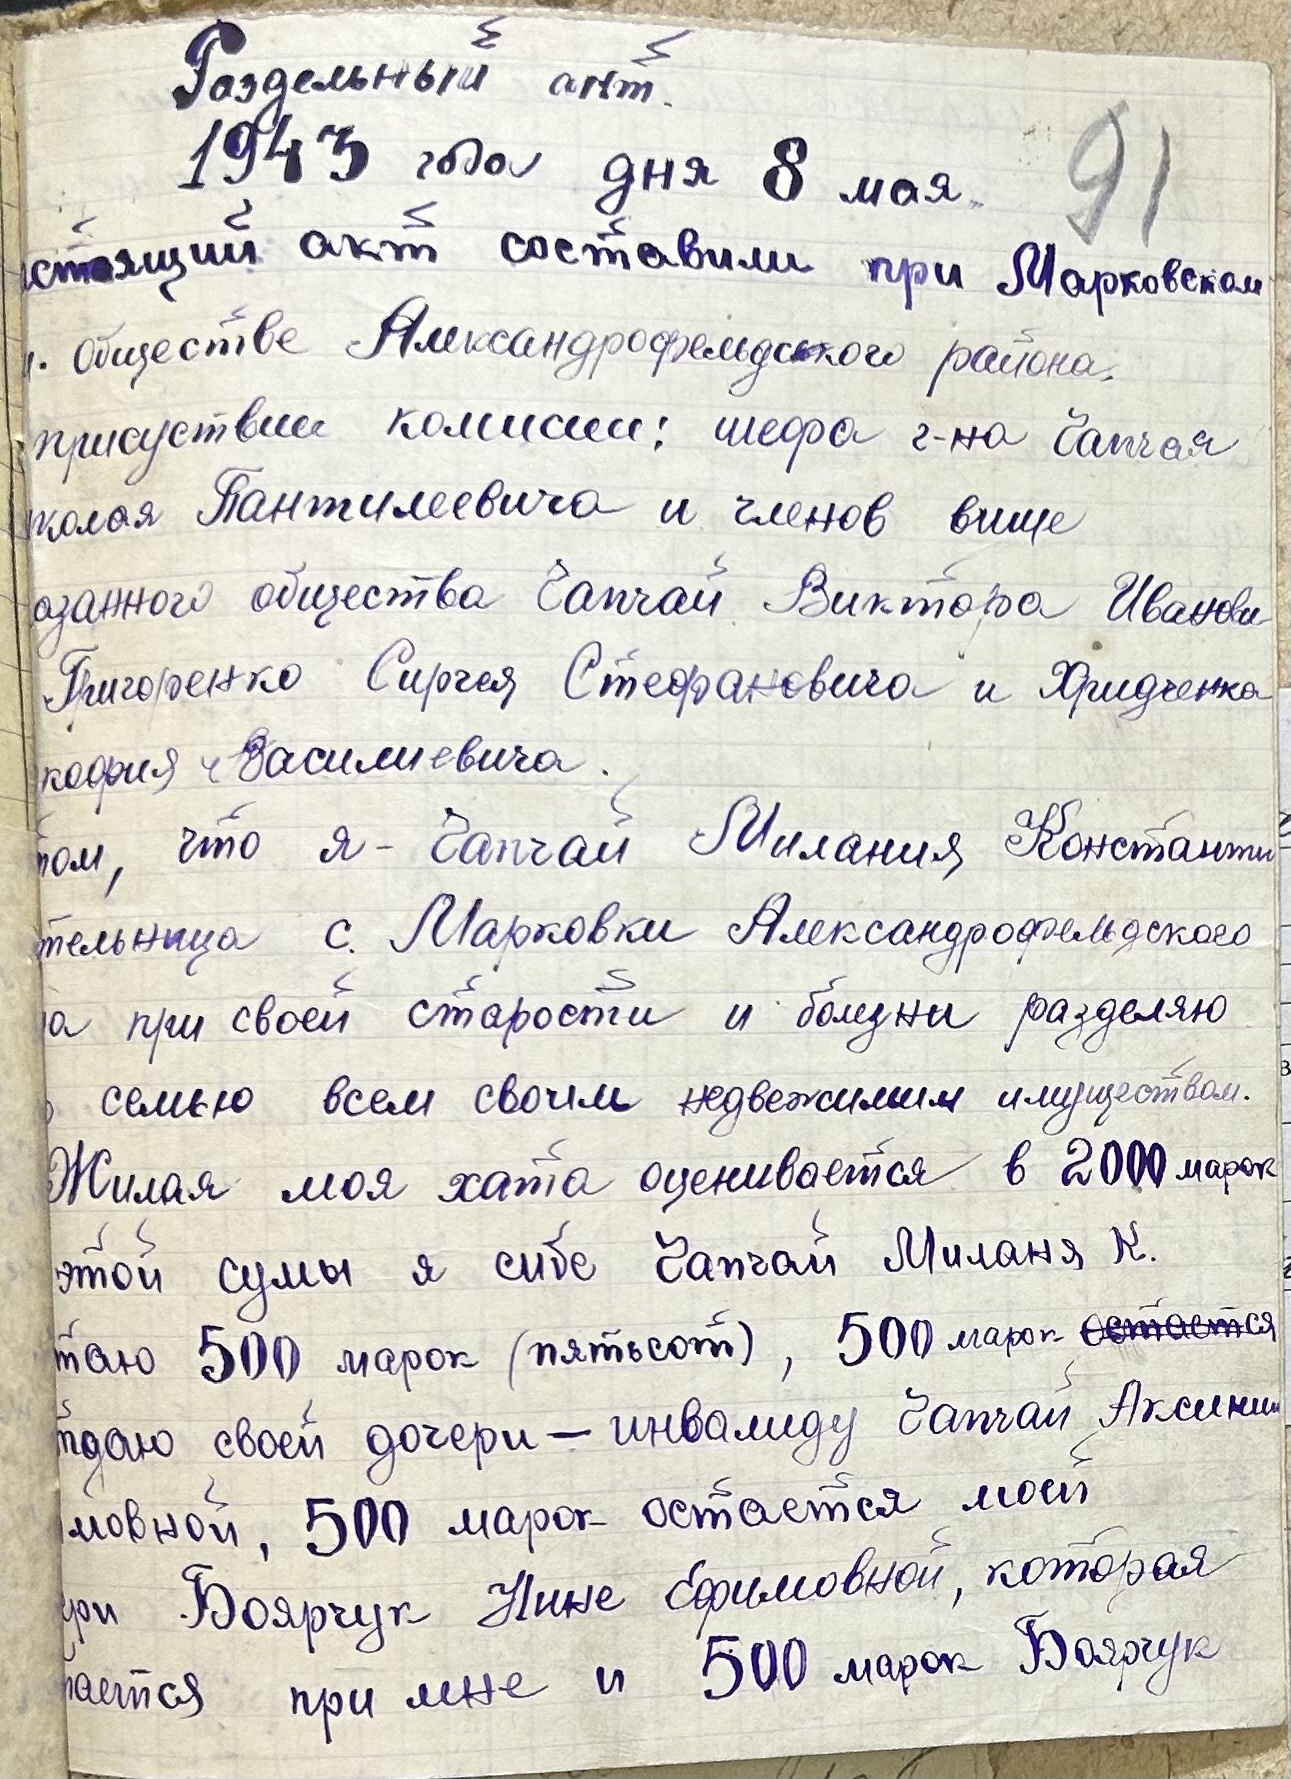 Раздельный акт.
1943 года дня 8 мая.
91
стоящий акт составили при Марковском
обществе Александрофельдского района.
присуствии комисии: шефа г-на Чапчая
колая Пантилеевича и членов више
азанного общества Чапчай Виктора Иванови
Григоренко Сиргея Стефановича и Хридченка
кофия Василиевича.
том, что я - Чапчай Милания Константи
тельница с. Марковки Александрофельдского
а при своей старости и болезни разделяю
семью всем своим недвежимым имуществом.
Жилая моя хата оценивается в 2000 марок
этой сумы я сибе Чапчай Миланя К.
таю 500 марок (пятьсот), 500 марок остается
тдаю своей дочери - инвалиду Чапчай Аксинии
мовной, 500 марок остается моей
ери Боярчук Нине Ефимовной, которая
тается при мне и 500 марок Боярчук